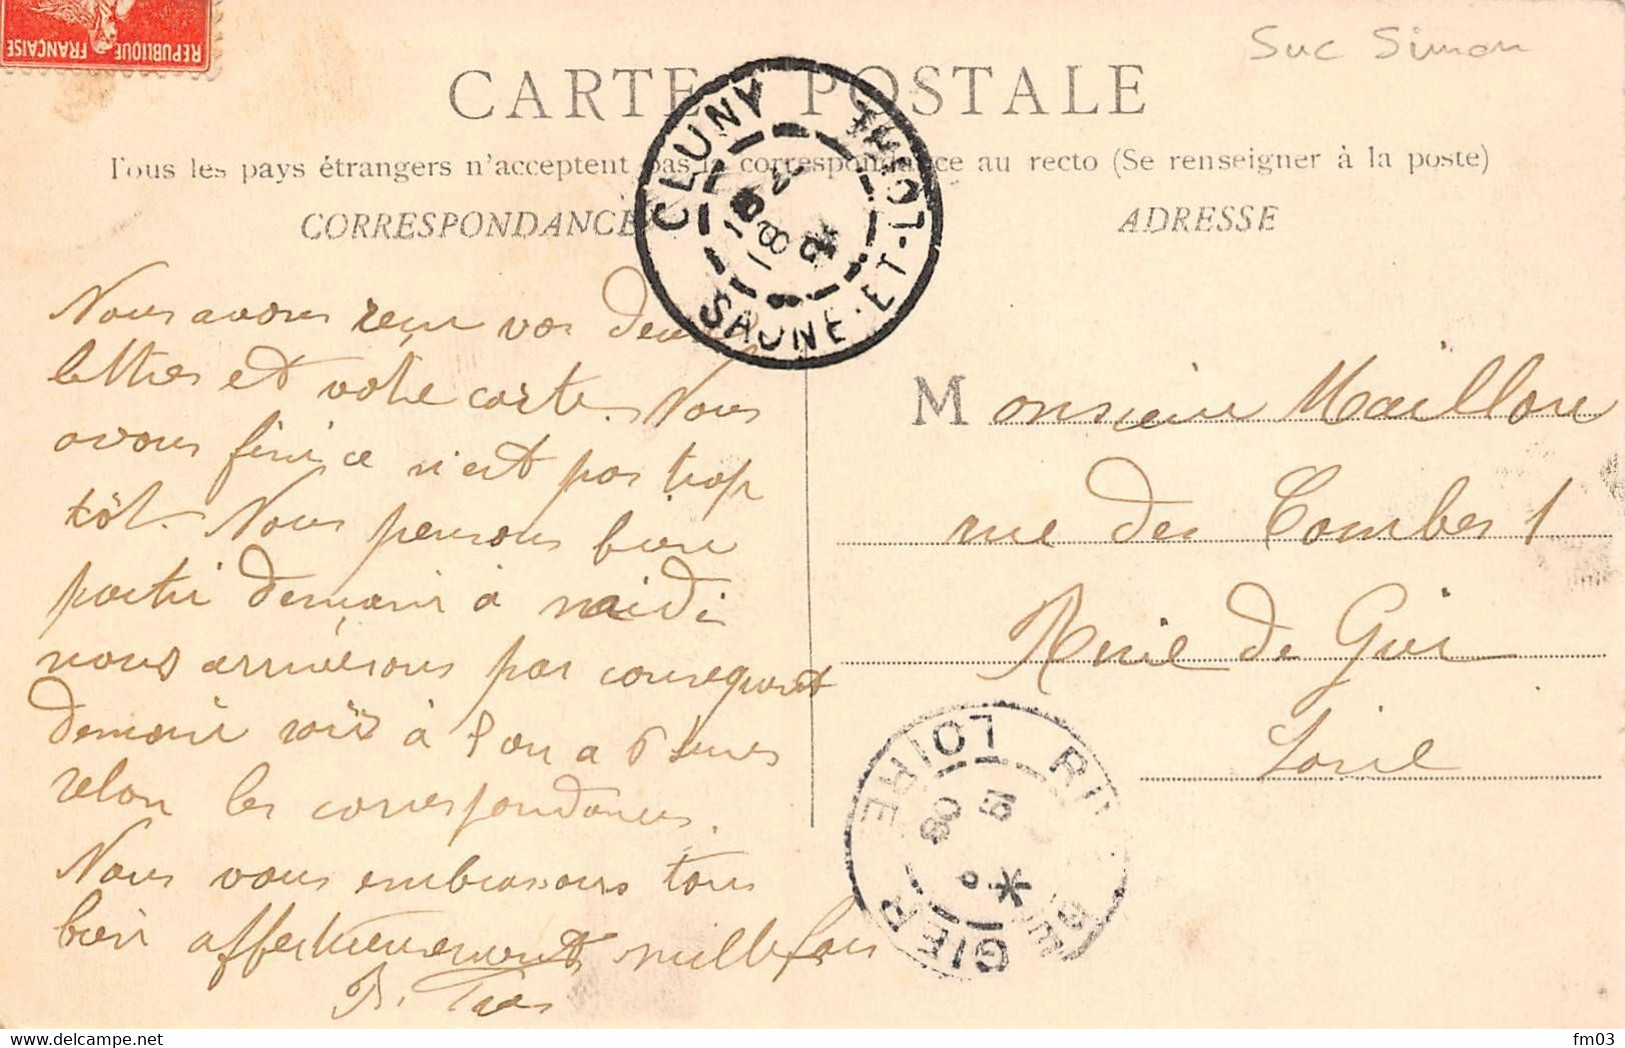 RÉPUBLIQUE FRANÇAISE
Suc Simon
CARTE POSTALE
Tous les pays étrangers n'acceptent pas la correspondance au recto (Se renseigner à la poste)
CORRESPONDANCE
ADRESSE
CLUNY
SAONE-ET-LOIRE
Nous avons reçu vos deux
lettres et votre carte. Nous
avons fini ce n'est pas trop
tôt. Nous pensons bien
partir demain à midi
nous arriverons par consequent
demain soir à 5 ou a 6 heures
selon les correspondances.
Nous vous embrassons tous
bien affectueusement mille fois
Monsieur Maillon
rue des Combes 1
Rive de Gier
Loire
LOIRE
GIER
08
fm03